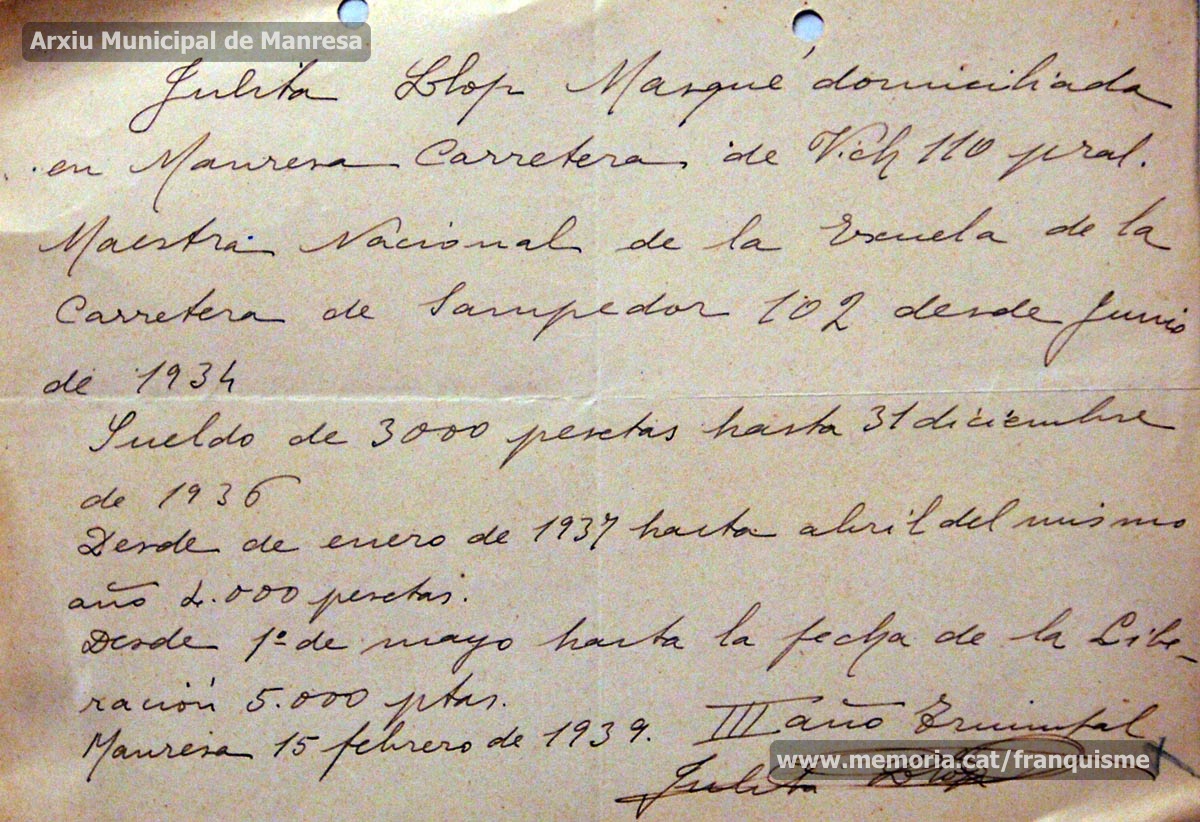 Arxiu Municipal de Manresa
Julita Llop Masqué domiciliada
en Manresa Carretera de Vich 110 pral.
Maestra Nacional de la Escuela de la
Carretera de Sampedor 102 desde Junio
de 1934
Sueldo de 3000 pesetas hasta 31 diciembre
de 1936
Desde de enero de 1937 hasta abril del mismo
año 4.000 pesetas.
Desde 1º de mayo hasta la fecha de la Libe-
ración 5.000 ptas.
Manresa 15 febrero de 1939. III año Triunfal
www.memoria.cat/franquisme
Julita Llop